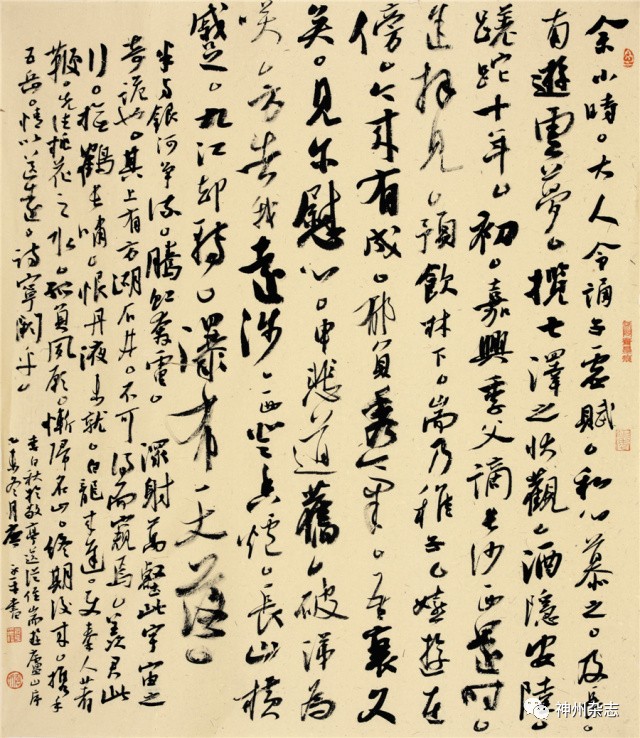 余小時。大人令誦子虛賦。私心慕之。及長。
南遊雲夢。攬七澤之壯觀。酒隱安陸。
蹉跎十年。初。嘉興季父謫長沙西還時。
拜見。預飲林下。耑乃稚子。嬉遊在
傍。今來有成。郁負秀氣。吾衰久
矣。見尔慰心。申悲道舊。破涕為
笑。方告我遠涉。西登香爐。長山橫
蹙。九江却轉。瀑布天落。
半与銀河爭流。騰虹奔電。潨射萬壑。此宇宙之
奇詭也。其上有方湖石井。不可得而窺焉。羨君此
行。撫鶴長嘯。恨丹液未就。白龍來遲。使秦人著
鞭。先往桃花之水。孤負夙願。慚歸名山。終期後來。攜手
五岳。情以送遠。詩寧闕乎。
李白秋於敬亭送從侄耑遊廬山序
冬月書
神州杂志